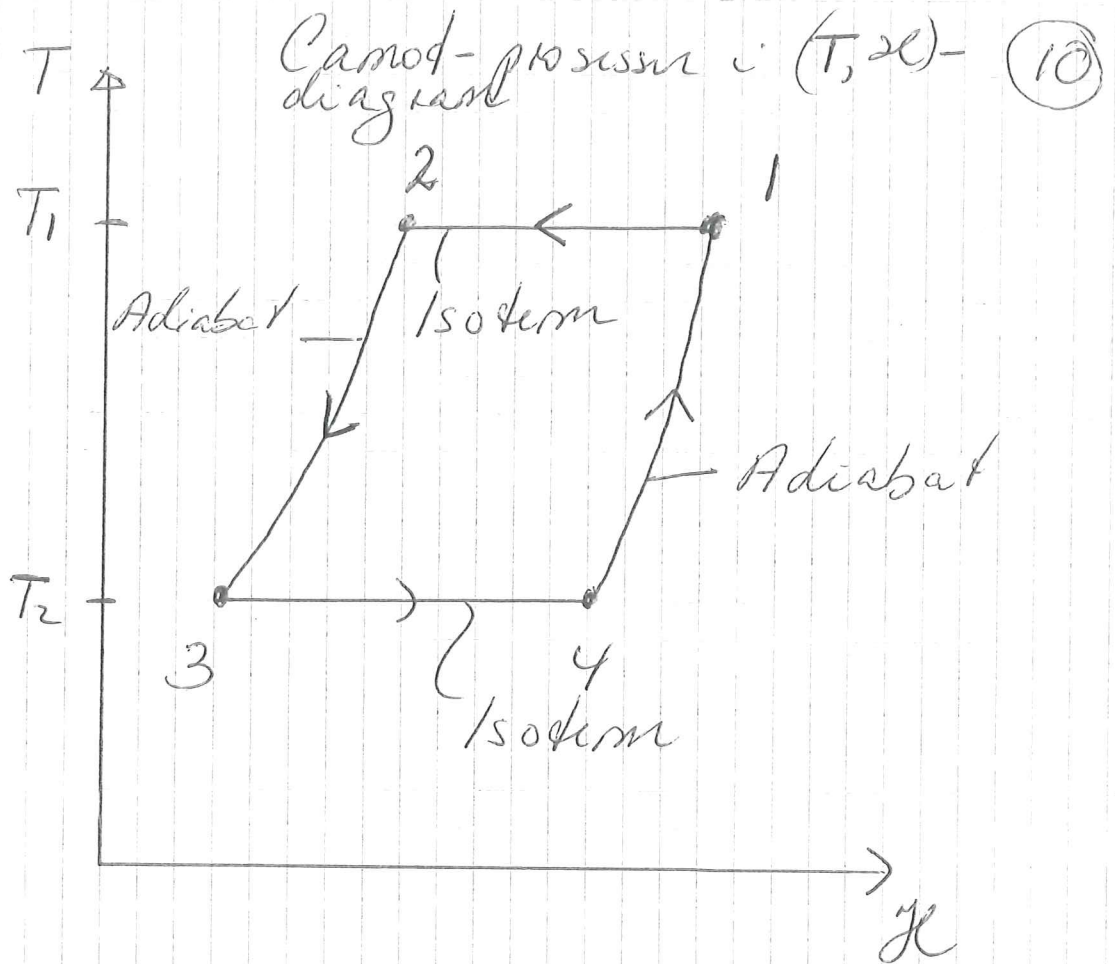 Carnot-prosessen i (T, H)- 10
diagram
T
2
1
T1
Adiabat
Isoterm
Adiabat
T2
3
4
Isoterm
H